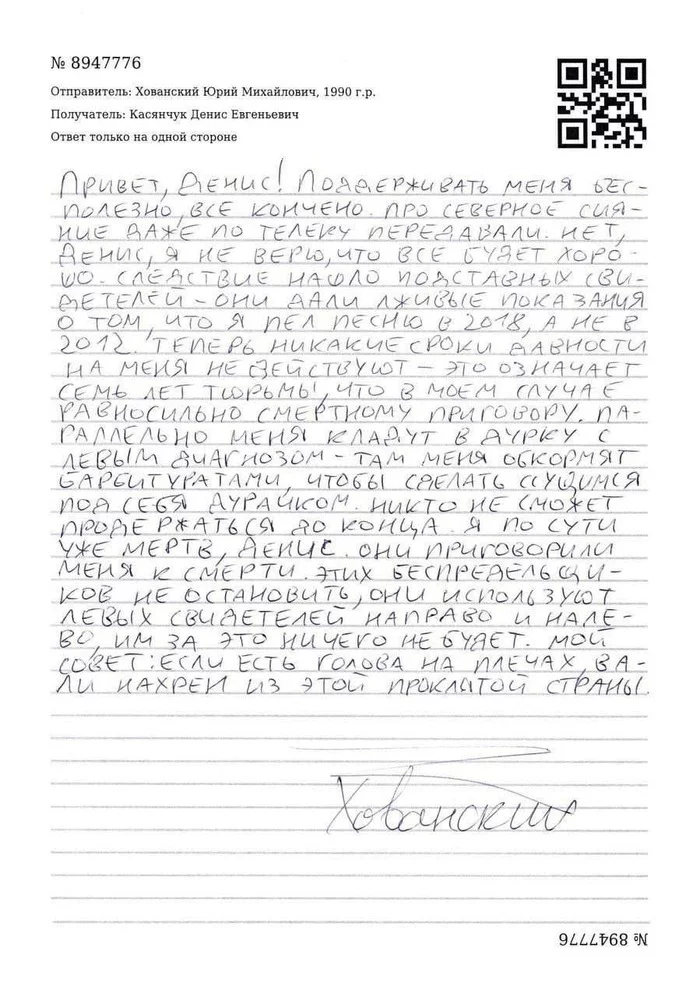 № 8947776
Отправитель: Хованский Юрий Михайлович, 1990 г.р.
Получатель: Касянчук Денис Евгеньевич
Ответ только на одной стороне
ПРИВЕТ, ДЕНИС! ПОДДЕРЖИВАТЬ МЕНЯ БЕС-
ПОЛЕЗНО, ВСЕ КОНЧЕНО. ПРО СЕВЕРНОЕ СИЯ-
НИЕ ДАЖЕ ПО ТЕЛЕКУ ПЕРЕДАВАЛИ. НЕТ,
ДЕНИС, Я НЕ ВЕРЮ, ЧТО ВСЕ БУДЕТ ХОРО-
ШО. СЛЕДСТВИЕ НАШЛО ПОДСТАВНЫХ СВИ-
ДЕТЕЛЕЙ - ОНИ ДАЛИ ЛЖИВЫЕ ПОКАЗАНИЯ
О ТОМ, ЧТО Я ПЕЛ ПЕСНЮ В 2018, А НЕ В
2012. ТЕПЕРЬ НИКАКИЕ СРОКИ ДАВНОСТИ
НА МЕНЯ НЕ ДЕЙСТВУЮТ - ЭТО ОЗНАЧАЕТ
СЕМЬ ЛЕТ ТЮРЬМЫ, ЧТО В МОЕМ СЛУЧАЕ
РАВНОСИЛЬНО СМЕРТНОМУ ПРИГОВОРУ. ПА-
РАЛЛЕЛЬНО МЕНЯ КЛАДУТ В ДУРКУ С
ЛЕВЫМ ДИАГНОЗОМ - ТАМ МЕНЯ ОБКОРМЯТ
БАРБИТУРАТАМИ, ЧТОБЫ СДЕЛАТЬ ССУЩИМСЯ
ПОД СЕБЯ ДУРАЧКОМ. НИКТО НЕ СМОЖЕТ
ПРОДЕРЖАТЬСЯ ДО КОНЦА. Я ПО СУТИ
УЖЕ МЕРТВ, ДЕНИС. ОНИ ПРИГОВОРИЛИ
МЕНЯ К СМЕРТИ. ЭТИХ БЕСПРЕДЕЛЬЩИ-
КОВ НЕ ОСТАНОВИТЬ, ОНИ ИСПОЛЬЗУЮТ
ЛЕВЫХ СВИДЕТЕЛЕЙ НАПРАВО И НАЛЕ-
ВО, ИМ ЗА ЭТО НИЧЕГО НЕ БУДЕТ. МОЙ
СОВЕТ: ЕСЛИ ЕСТЬ ГОЛОВА НА ПЛЕЧАХ, ВА-
ЛИ НАХРЕН ИЗ ЭТОЙ ПРОКЛЯТОЙ СТРАНЫ.
Хованский
№ 8947776